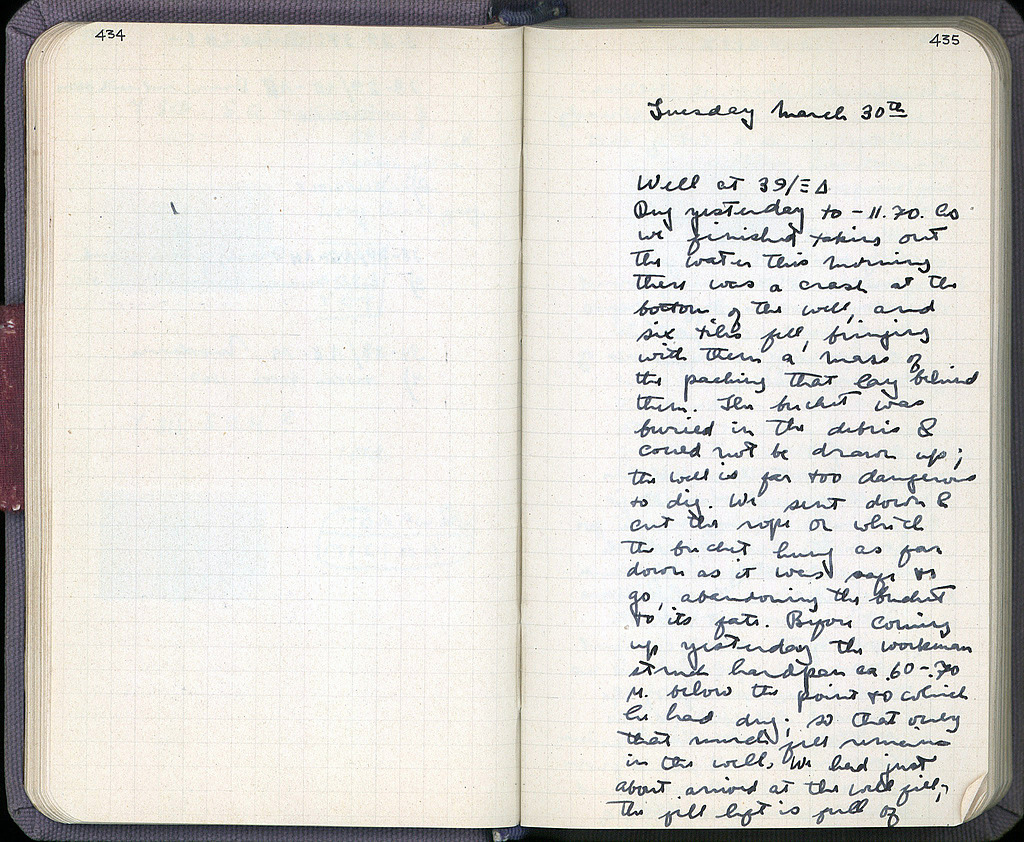 434
435
Tuesday March 30th
Well at 39/ΞΔ
Dug yesterday to -11.70. As
we finished taking out
the water this morning
there was a crash at the
bottom of the well, and
six tiles fell, bringing
with them a mass of
the packing that lay behind
them. The bucket was
buried in the debris &
could not be drawn up;
the well is far too dangerous
to dig. We sent down &
cut the rope on which
the bucket hung as far
down as it was safe to
go, abandoning the bucket
to its fate. Before coming
up yesterday the workman
struck hardpan ca .60-.70
M. below the point to which
he had dug; so that only
that much fill remains
in the well. We had just
about arrived at the well fill;
the fill left is full of